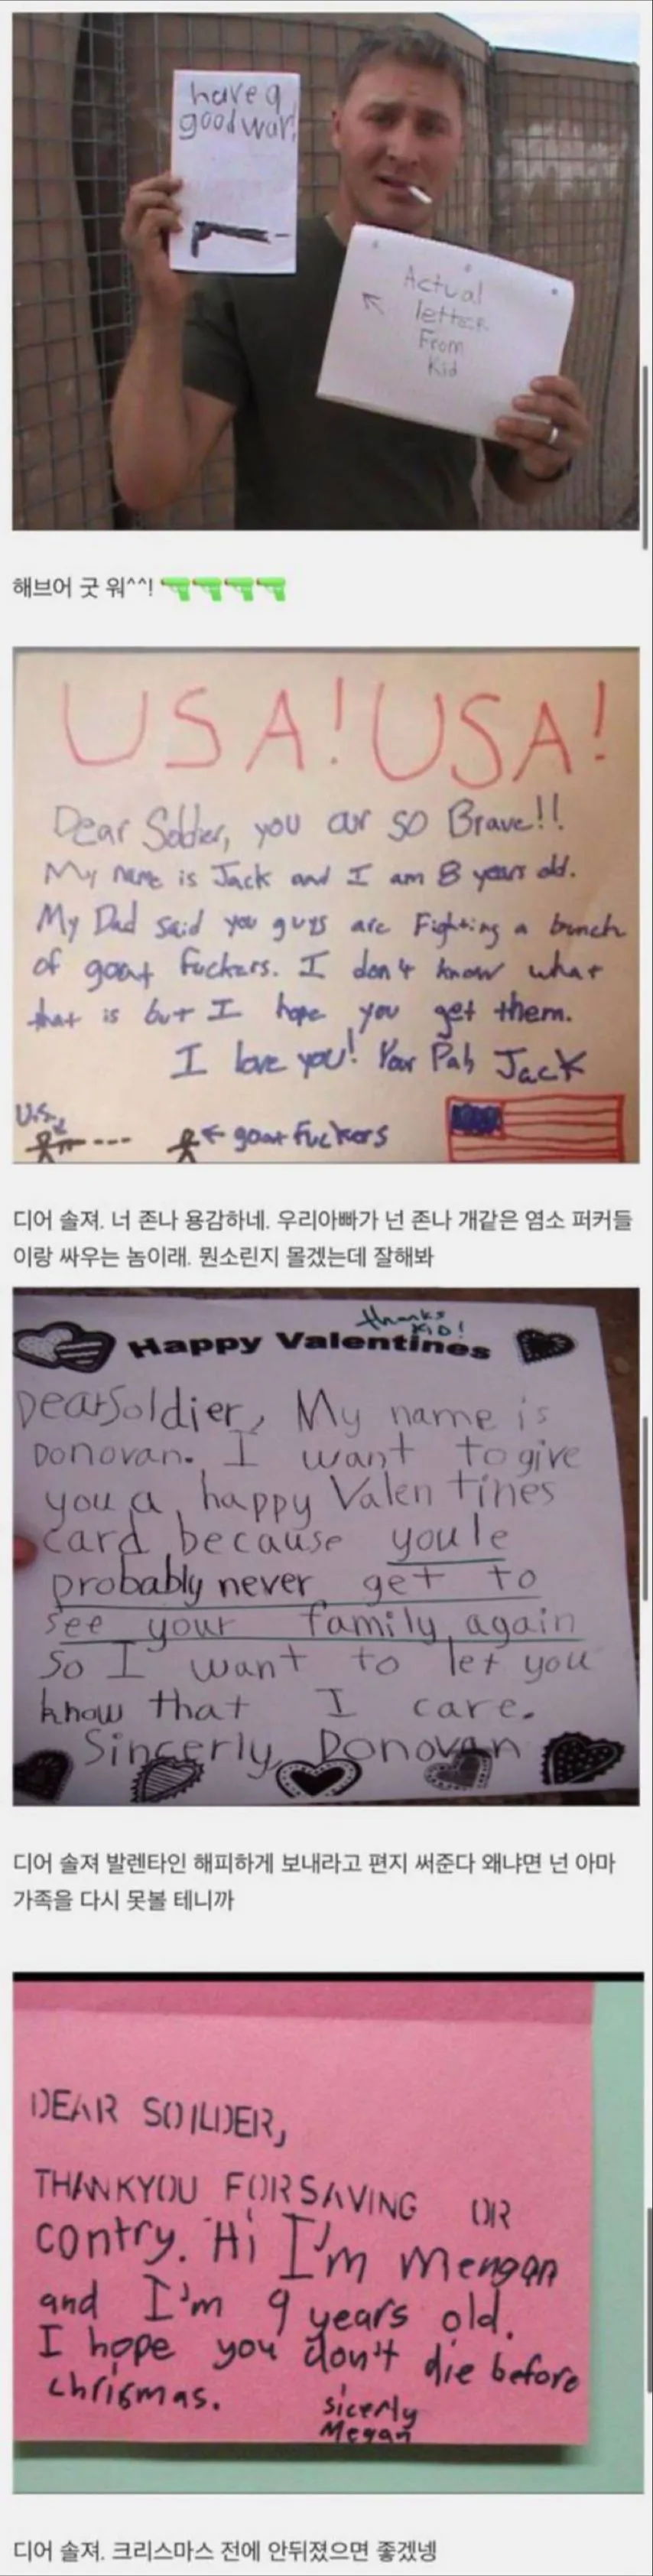 have a
good war!
Actual
letter
From
Kid
해브어 굿 워^^! 🔫🔫🔫🔫
USA! USA!
Dear Soldier, you our so Brave!!
My name is Jack and I am 8 years old.
My Dad said you guys are Fighting a bunch
of goat fuckers. I don't know what
that is but I hope you get them.
I love you! Your Pal, Jack
U.S.
goat fuckers
디어 솔져. 너 존나 용감하네. 우리아빠가 넌 존나 개같은 염소 퍼커들
이랑 싸우는 놈이래. 뭔소린지 몰겠는데 잘해봐
thanks
KID!
Happy Valentines
Dear Soldier, My name is
Donovan. I want to give
you a happy Valentines
card because youle
probably never get to
see your family again
So I want to let you
know that I care.
Sincerly Donovan
디어 솔져 발렌타인 해피하게 보내라고 편지 써준다 왜냐면 넌 아마
가족을 다시 못볼 테니까
DEAR SOILDER,
THANKYOU FOR SAVING OR
contry. Hi I'm mengan
and I'm 9 years old.
I hope you don't die before
chrismas.
sicerly
Megan
디어 솔져. 크리스마스 전에 안뒤졌으면 좋겠넹